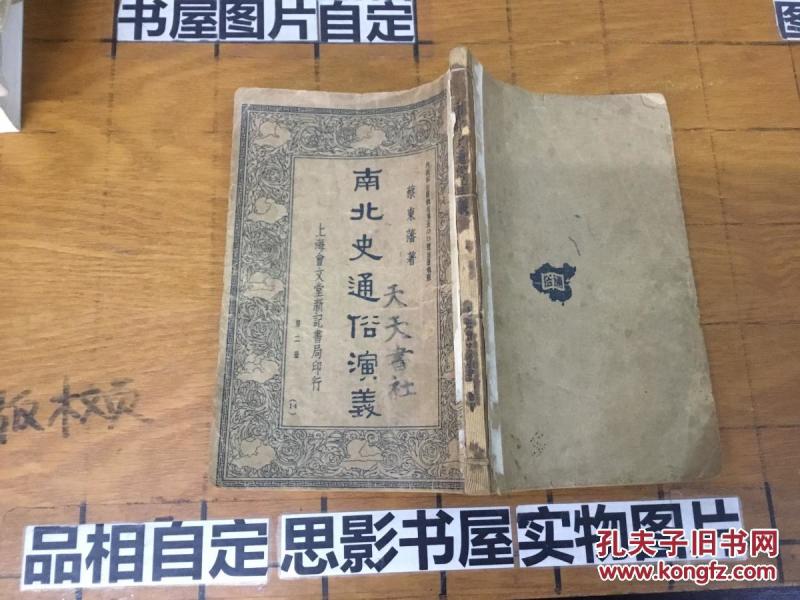 书屋图片自定
图
蔡東藩著
南北史通俗演義
天天書社
上海會文堂新記書局印行
第二册
通俗
版权页
品相自定
思影书屋
实物图片
孔夫子旧书网
www.kongfz.com